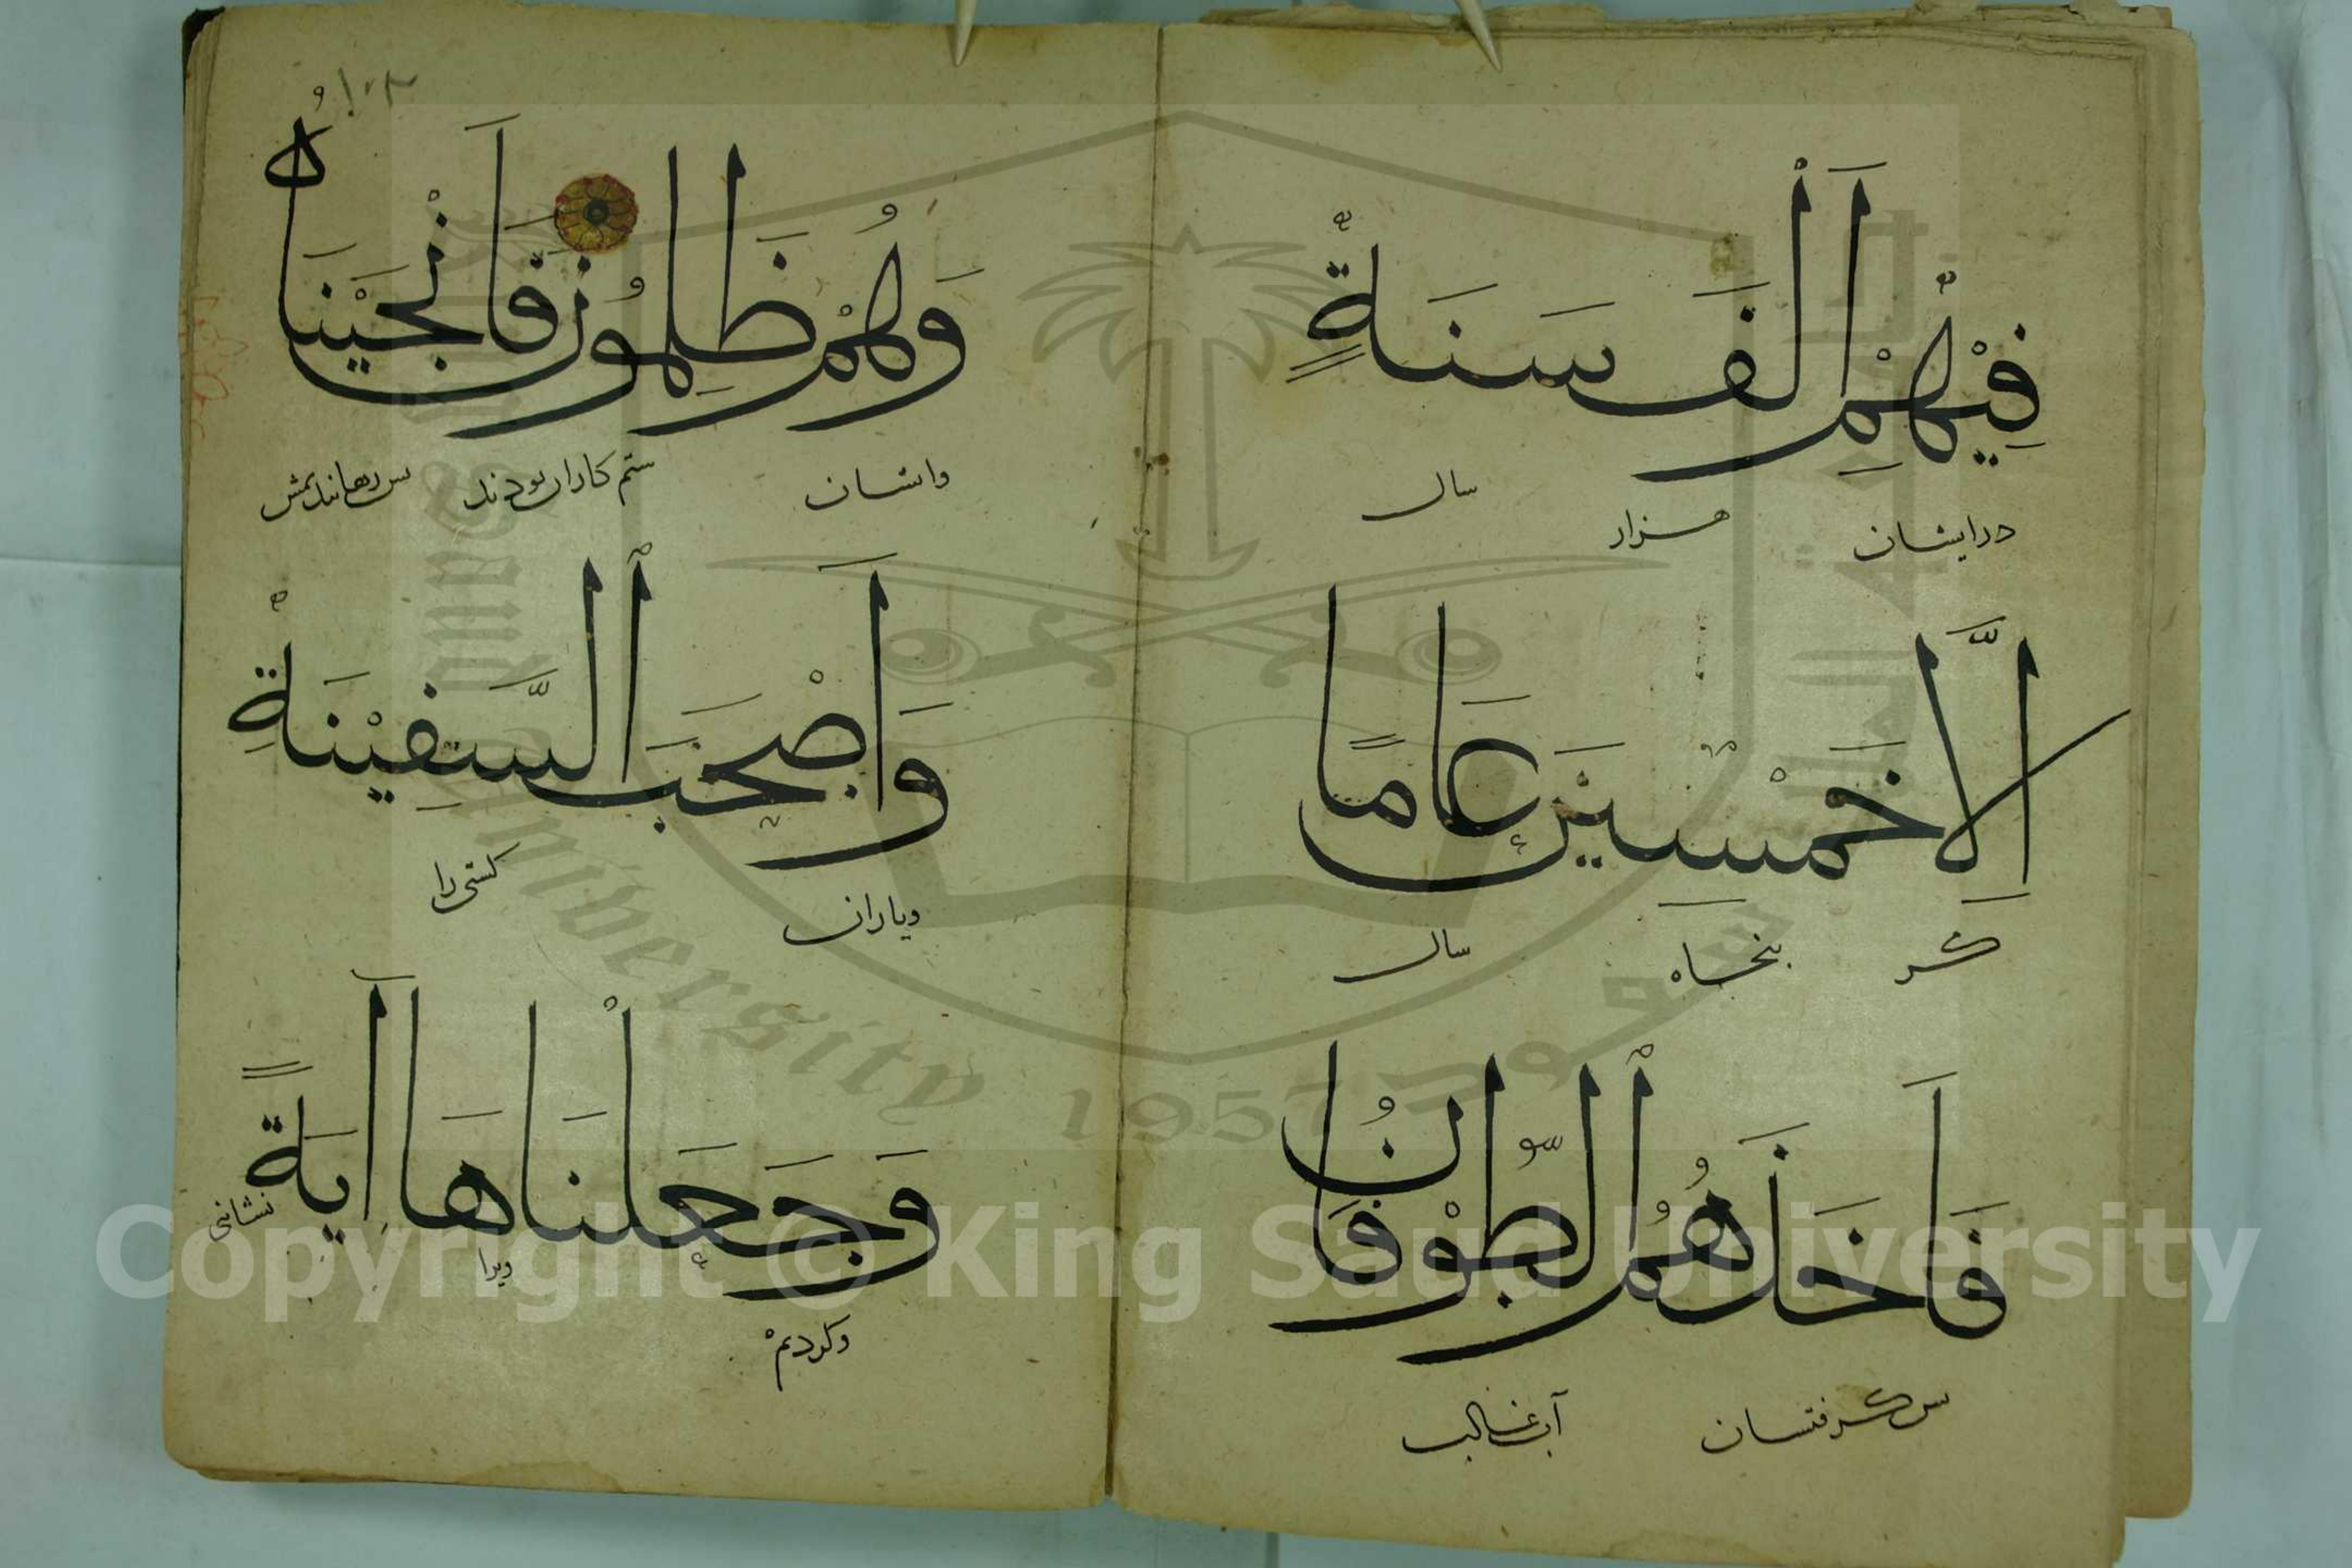 فِيْهِمْ اَلْفَ سَنَةٍ
درایشان هزار سال
اِلَّا خَمْسِيْنَ عَامًا
کر بنجاه سال
فَاَخَذَهُمُ الطُّوْفَانُ
س کرفتسان آب غالب
وَهُمْ ظٰلِمُوْنَ فَاَنْجَيْنَاهُ
وایشان ستم کاران بودند س رهانیدیمش
وَاَصْحٰبَ السَّفِيْنَةِ
ویاران کشتی را
وَجَعَلْنَاهَا اٰيَةً
وکردیم ویرا نشانی
١٠٣
Copyright © King Saud University
King Saud University
1957